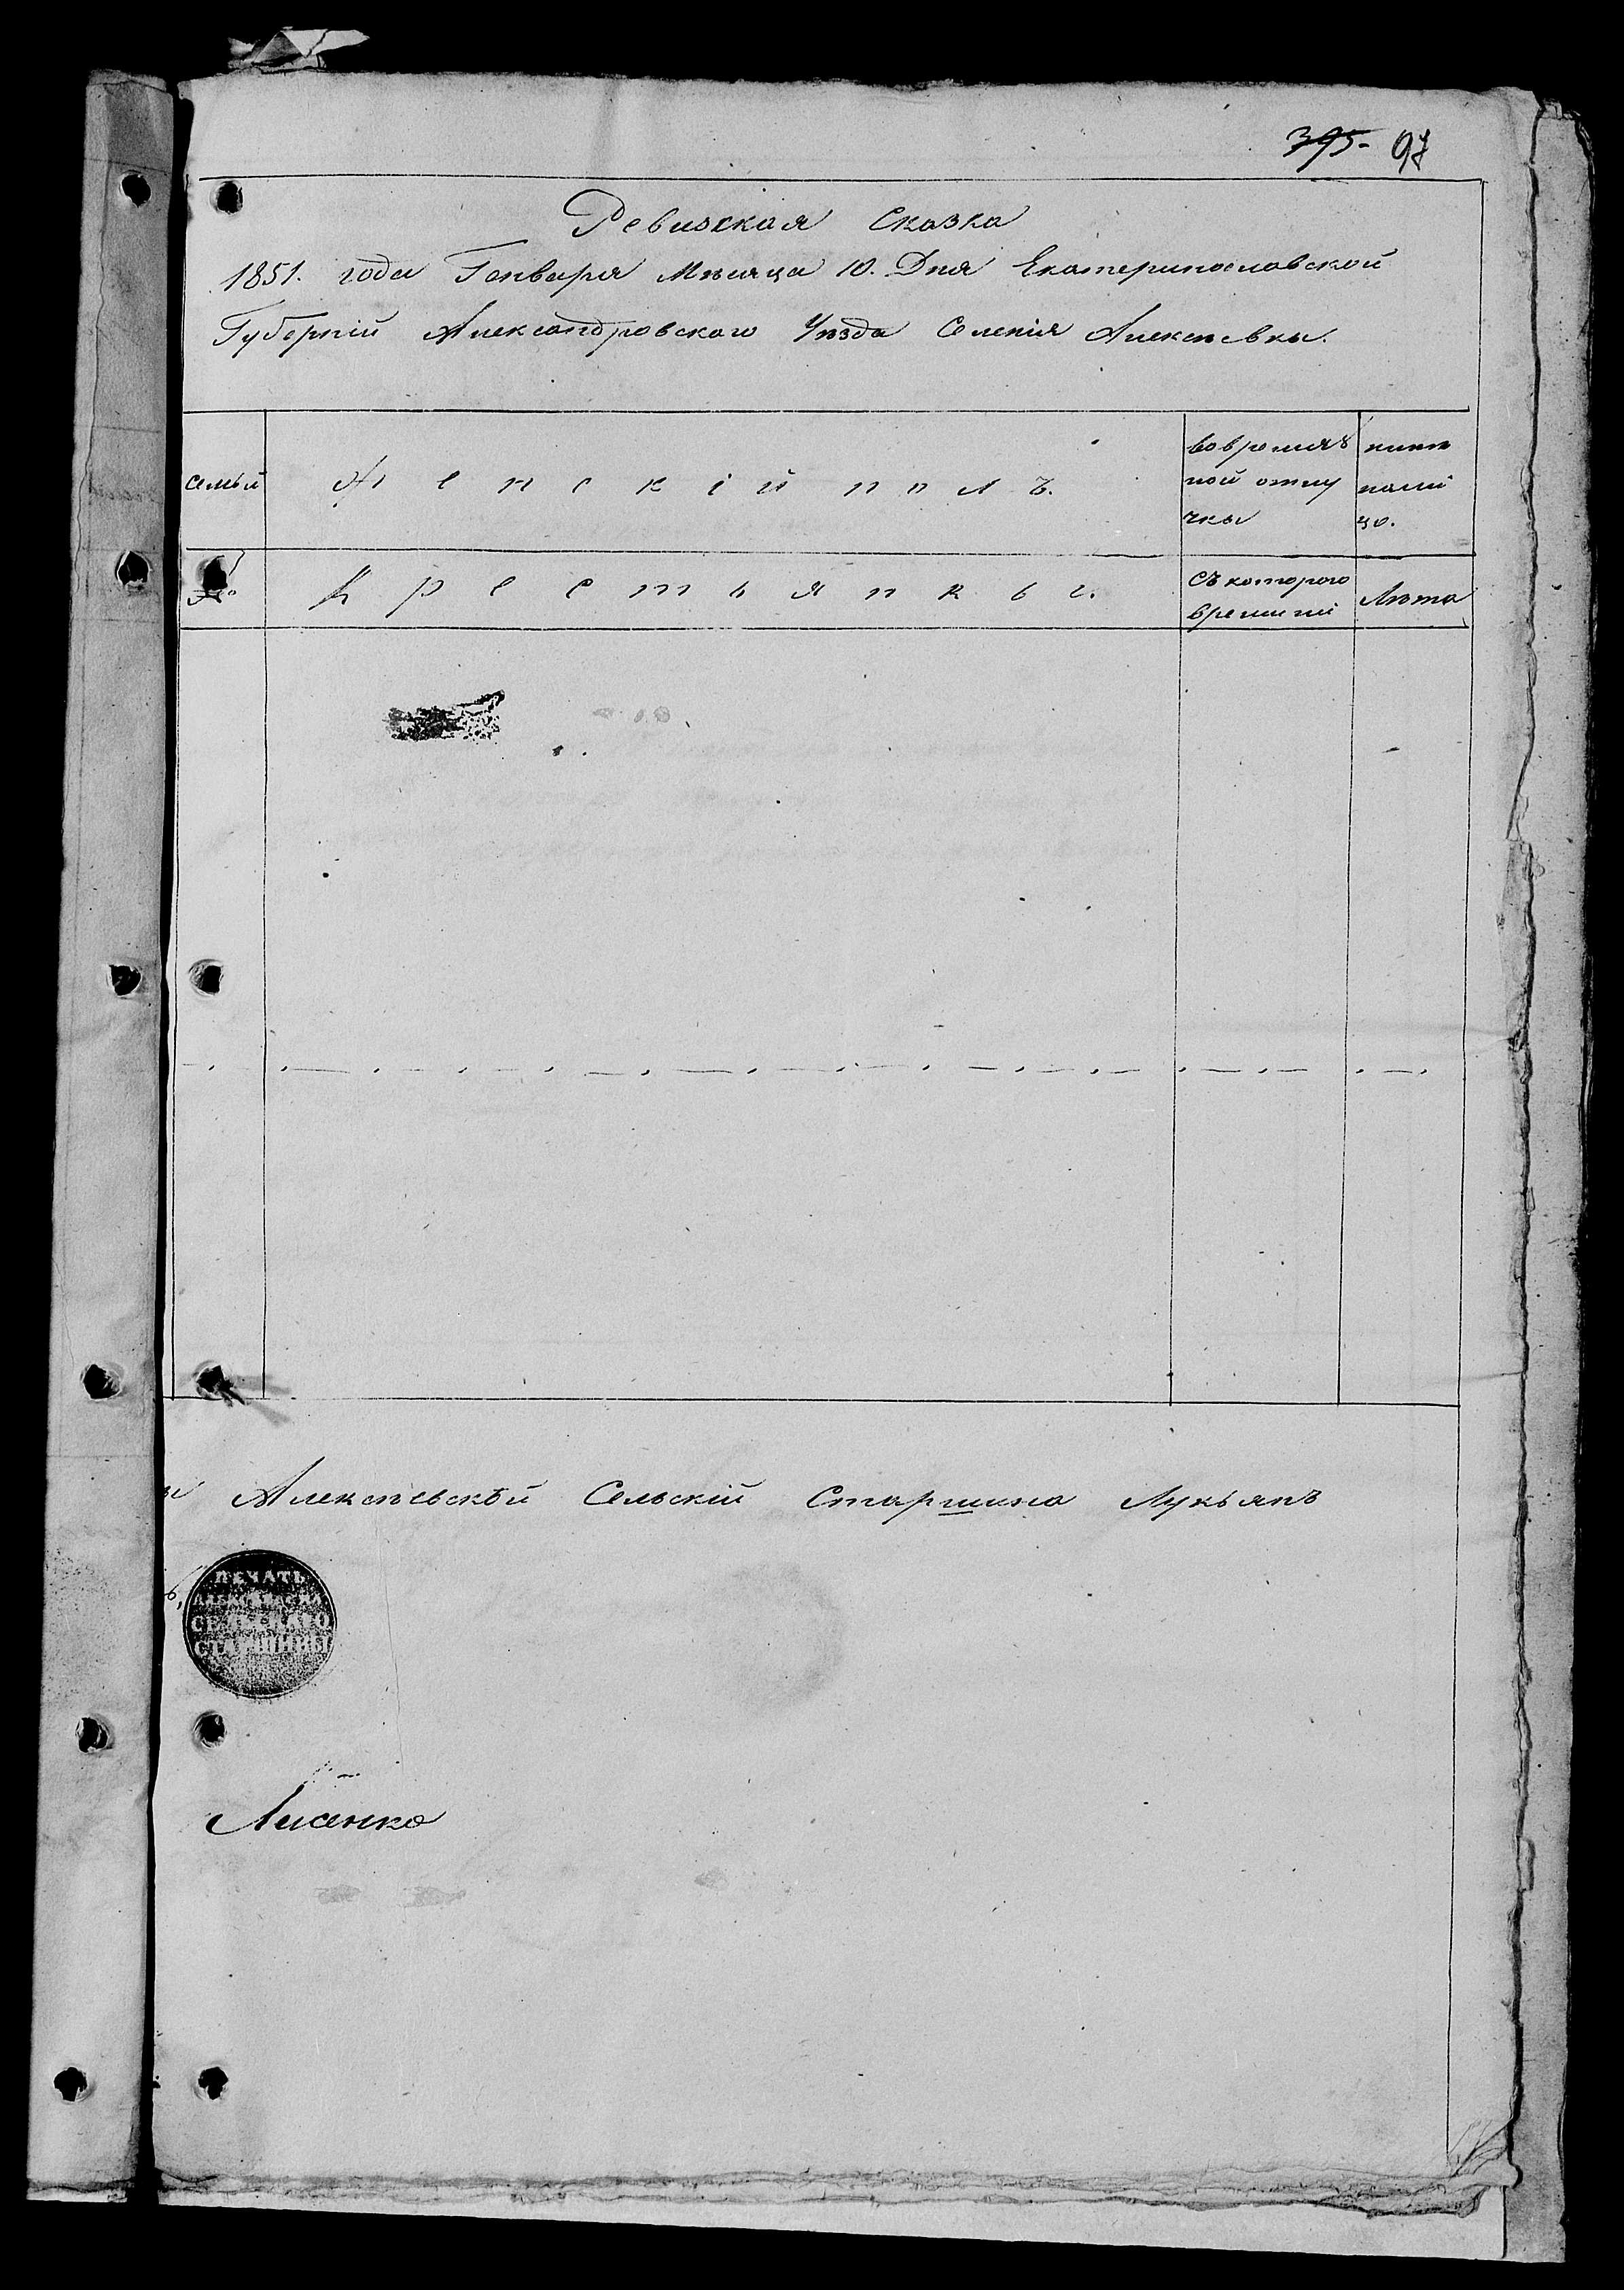 395- 97
Ревизская Сказка
1851. года Генваря Мѣсяца 10. Дня Екатеринославской
Губерніи Александровскаго Уѣзда Селенія Алексѣевки.
Семьи
Женскій полъ.
вовремян
ной отлу
чкы
нын
нали
цо.
№
Крестьянкы.
Съ которого
времини
Лѣта
Алексѣевскій Сельскій Старшина Лукьянъ
ПЕЧАТЬ
СЕЛЬСКАГО
СТАРШИНЫ
Лисенко